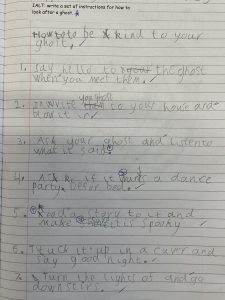 IALT: write a set of instructions for how to
look after a ghost.
How to be kind to your
ghost.
1. Say hello to the ghost
when you meet them.
2. Invite ghost to your house and
blow it in
3. Ask your ghost and listen to
what it said
4. Ask if it wants a dance
party. Befor bed.
5. Read a story to it and
make it is spooky
6. Tuck it up in a cuver and
say good night.
7. Turn the lights of and go
downsters.